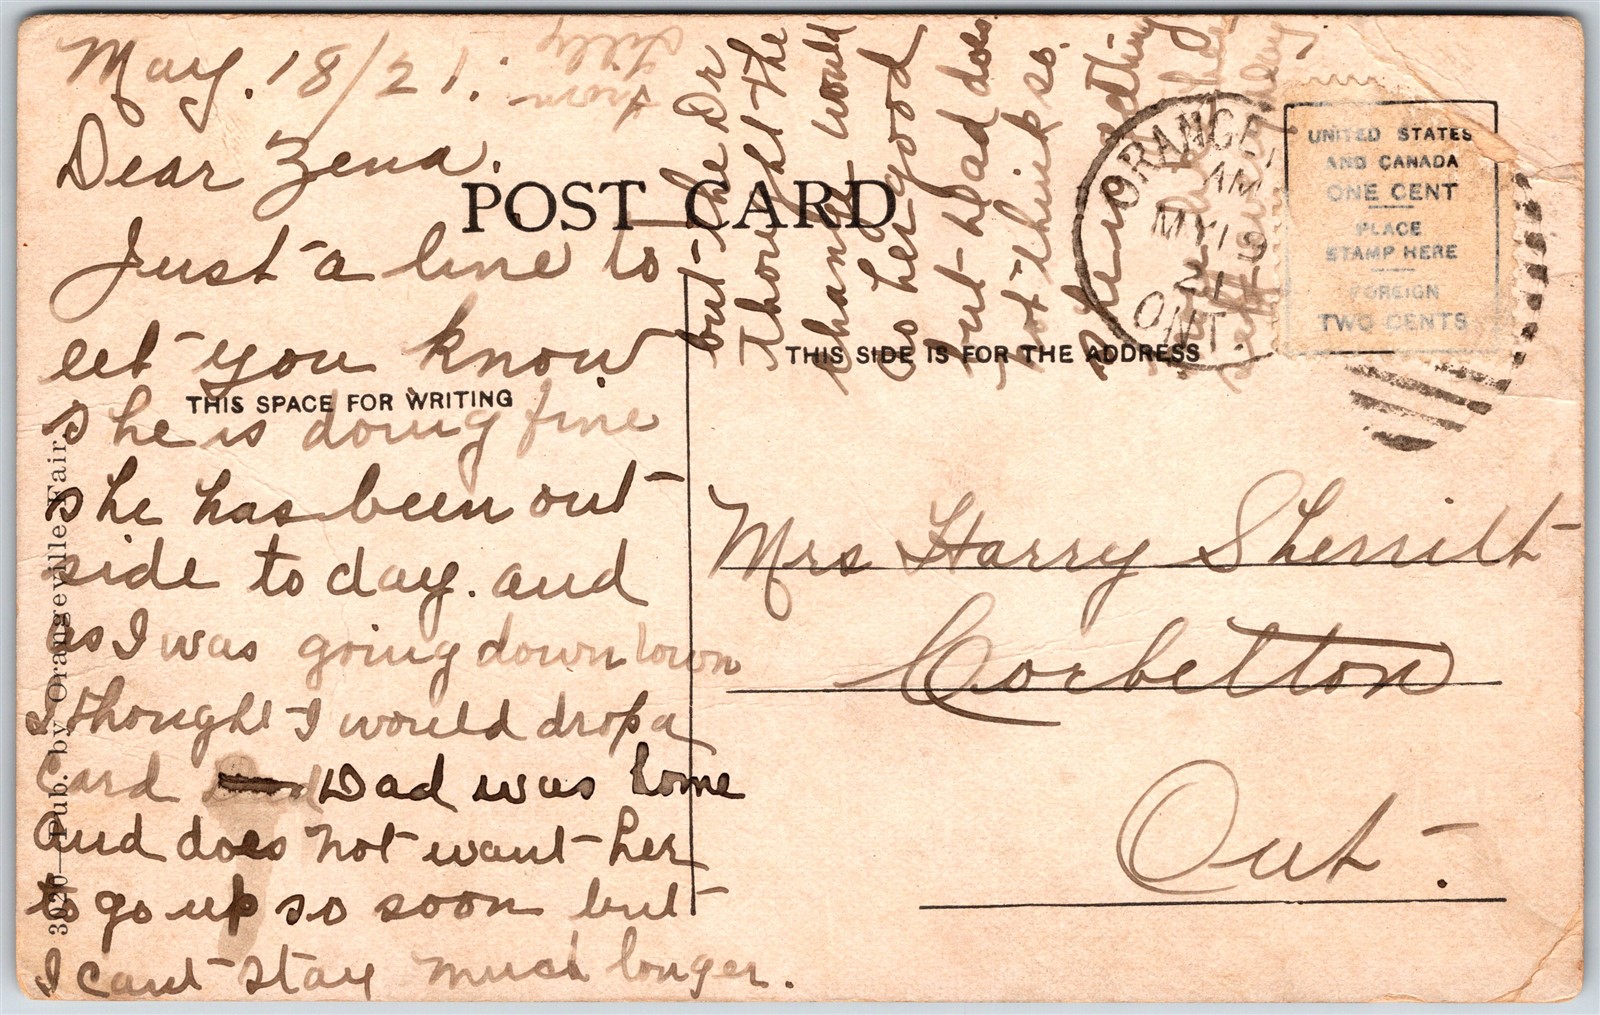 May. 18/21.
Dear Zena.
Just a line to
let you know
she is doing fine
she has been out
side today. and
as I was going down town
I thought I would drop a
Card Dad was home
and does not want her
to go up so soon but
I cant stay much longer.
but the Dr
thought the
change would
do her good
but Dad does
not think so.
she
from
Lilly
POST CARD
THIS SPACE FOR WRITING
THIS SIDE IS FOR THE ADDRESS
3020—Pub. by Orangeville Fair.
ORANGE
AM
MY 19
21
ONT.
UNITED STATES
AND CANADA
ONE CENT
PLACE
STAMP HERE
FOREIGN
TWO CENTS
Mrs Harry Sherritt
Corbetton
Ont.